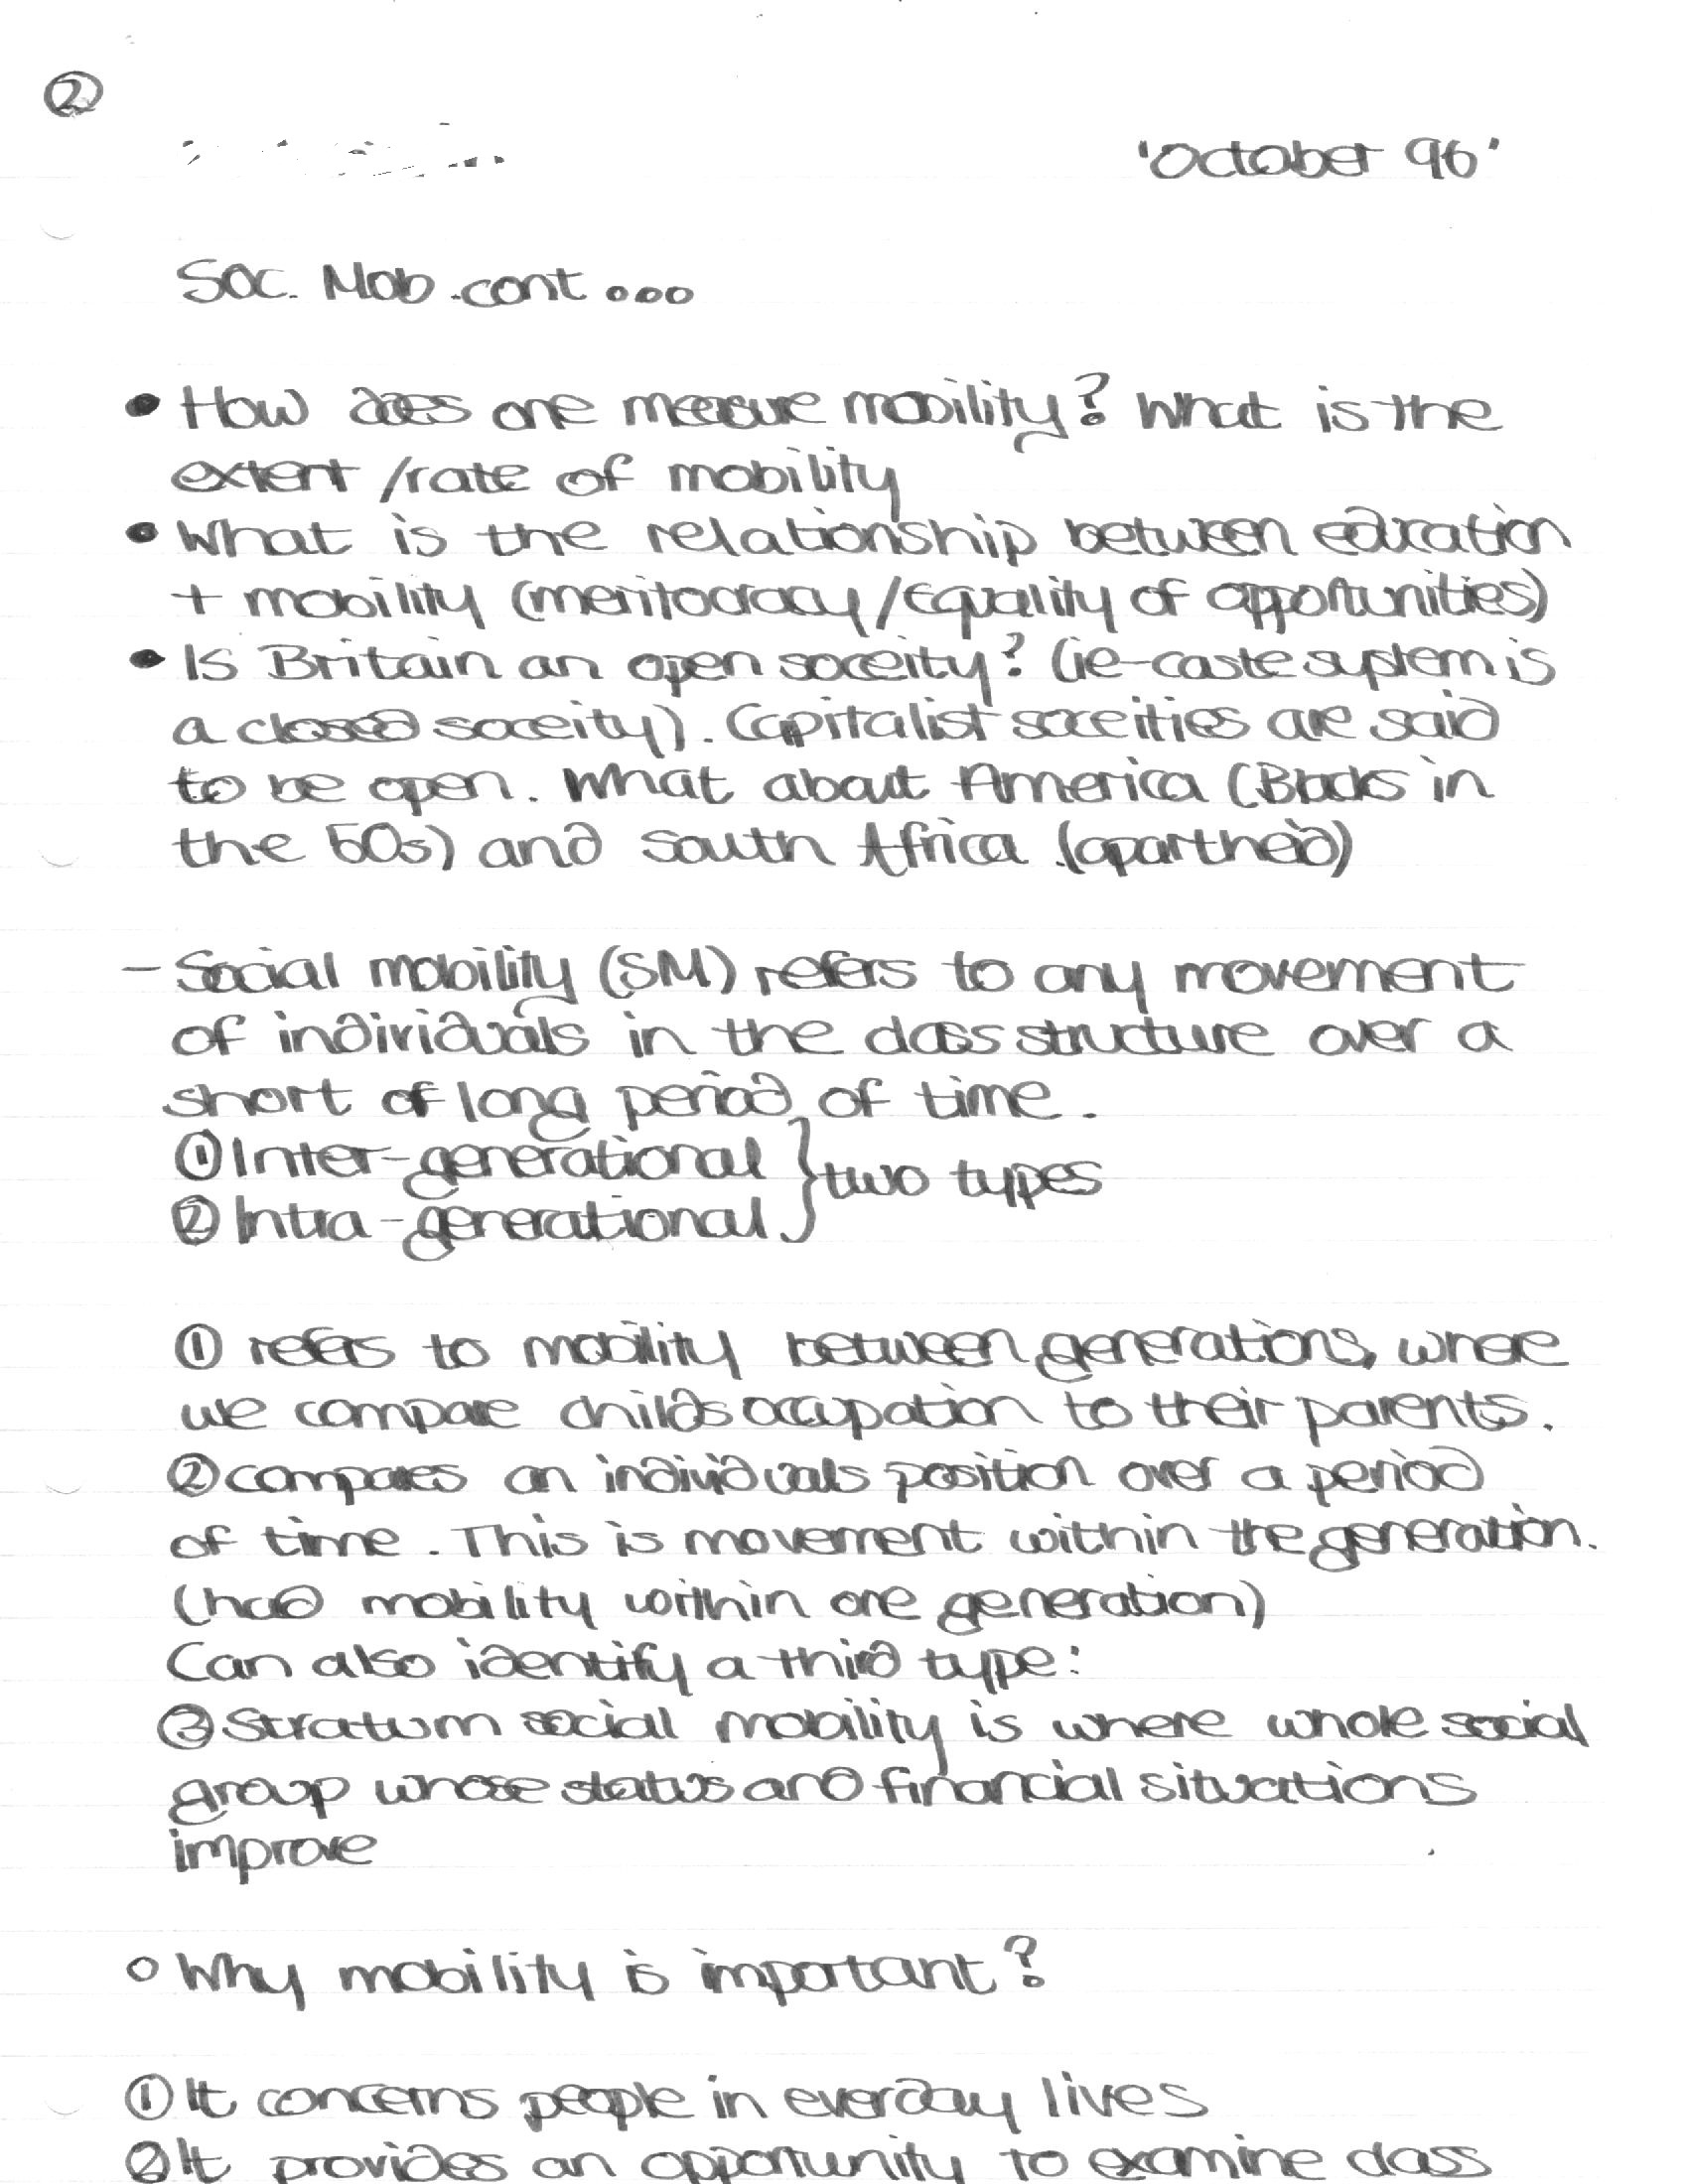 ②
'October 96'
Soc. Mob. cont...
• How does one measure mobility? What is the
extent /rate of mobility
• What is the relationship between education
+ mobility (meritocracy/Equality of opportunities)
• Is Britain an open soceity? (ie-caste system is
a closed soceity). Capitalist soceities are said
to be open. What about America (Blacks in
the 50s) and South Africa (apartheid)
- Social mobility (SM) refers to any movement
of individuals in the class structure over a
short of long period of time.
① Inter-generational } two types
② Intra-generational
① refers to mobility between generations, where
we compare childs occupation to their parents.
② compares an individuals position over a period
of time. This is movement within the generation.
(had mobility within one generation)
Can also identify a third type:
③ Stratum social mobility is where whole social
group whose status and financial situations
improve
○ Why mobility is important?
① It concerns people in everday lives
② It provides an opportunity to examine class